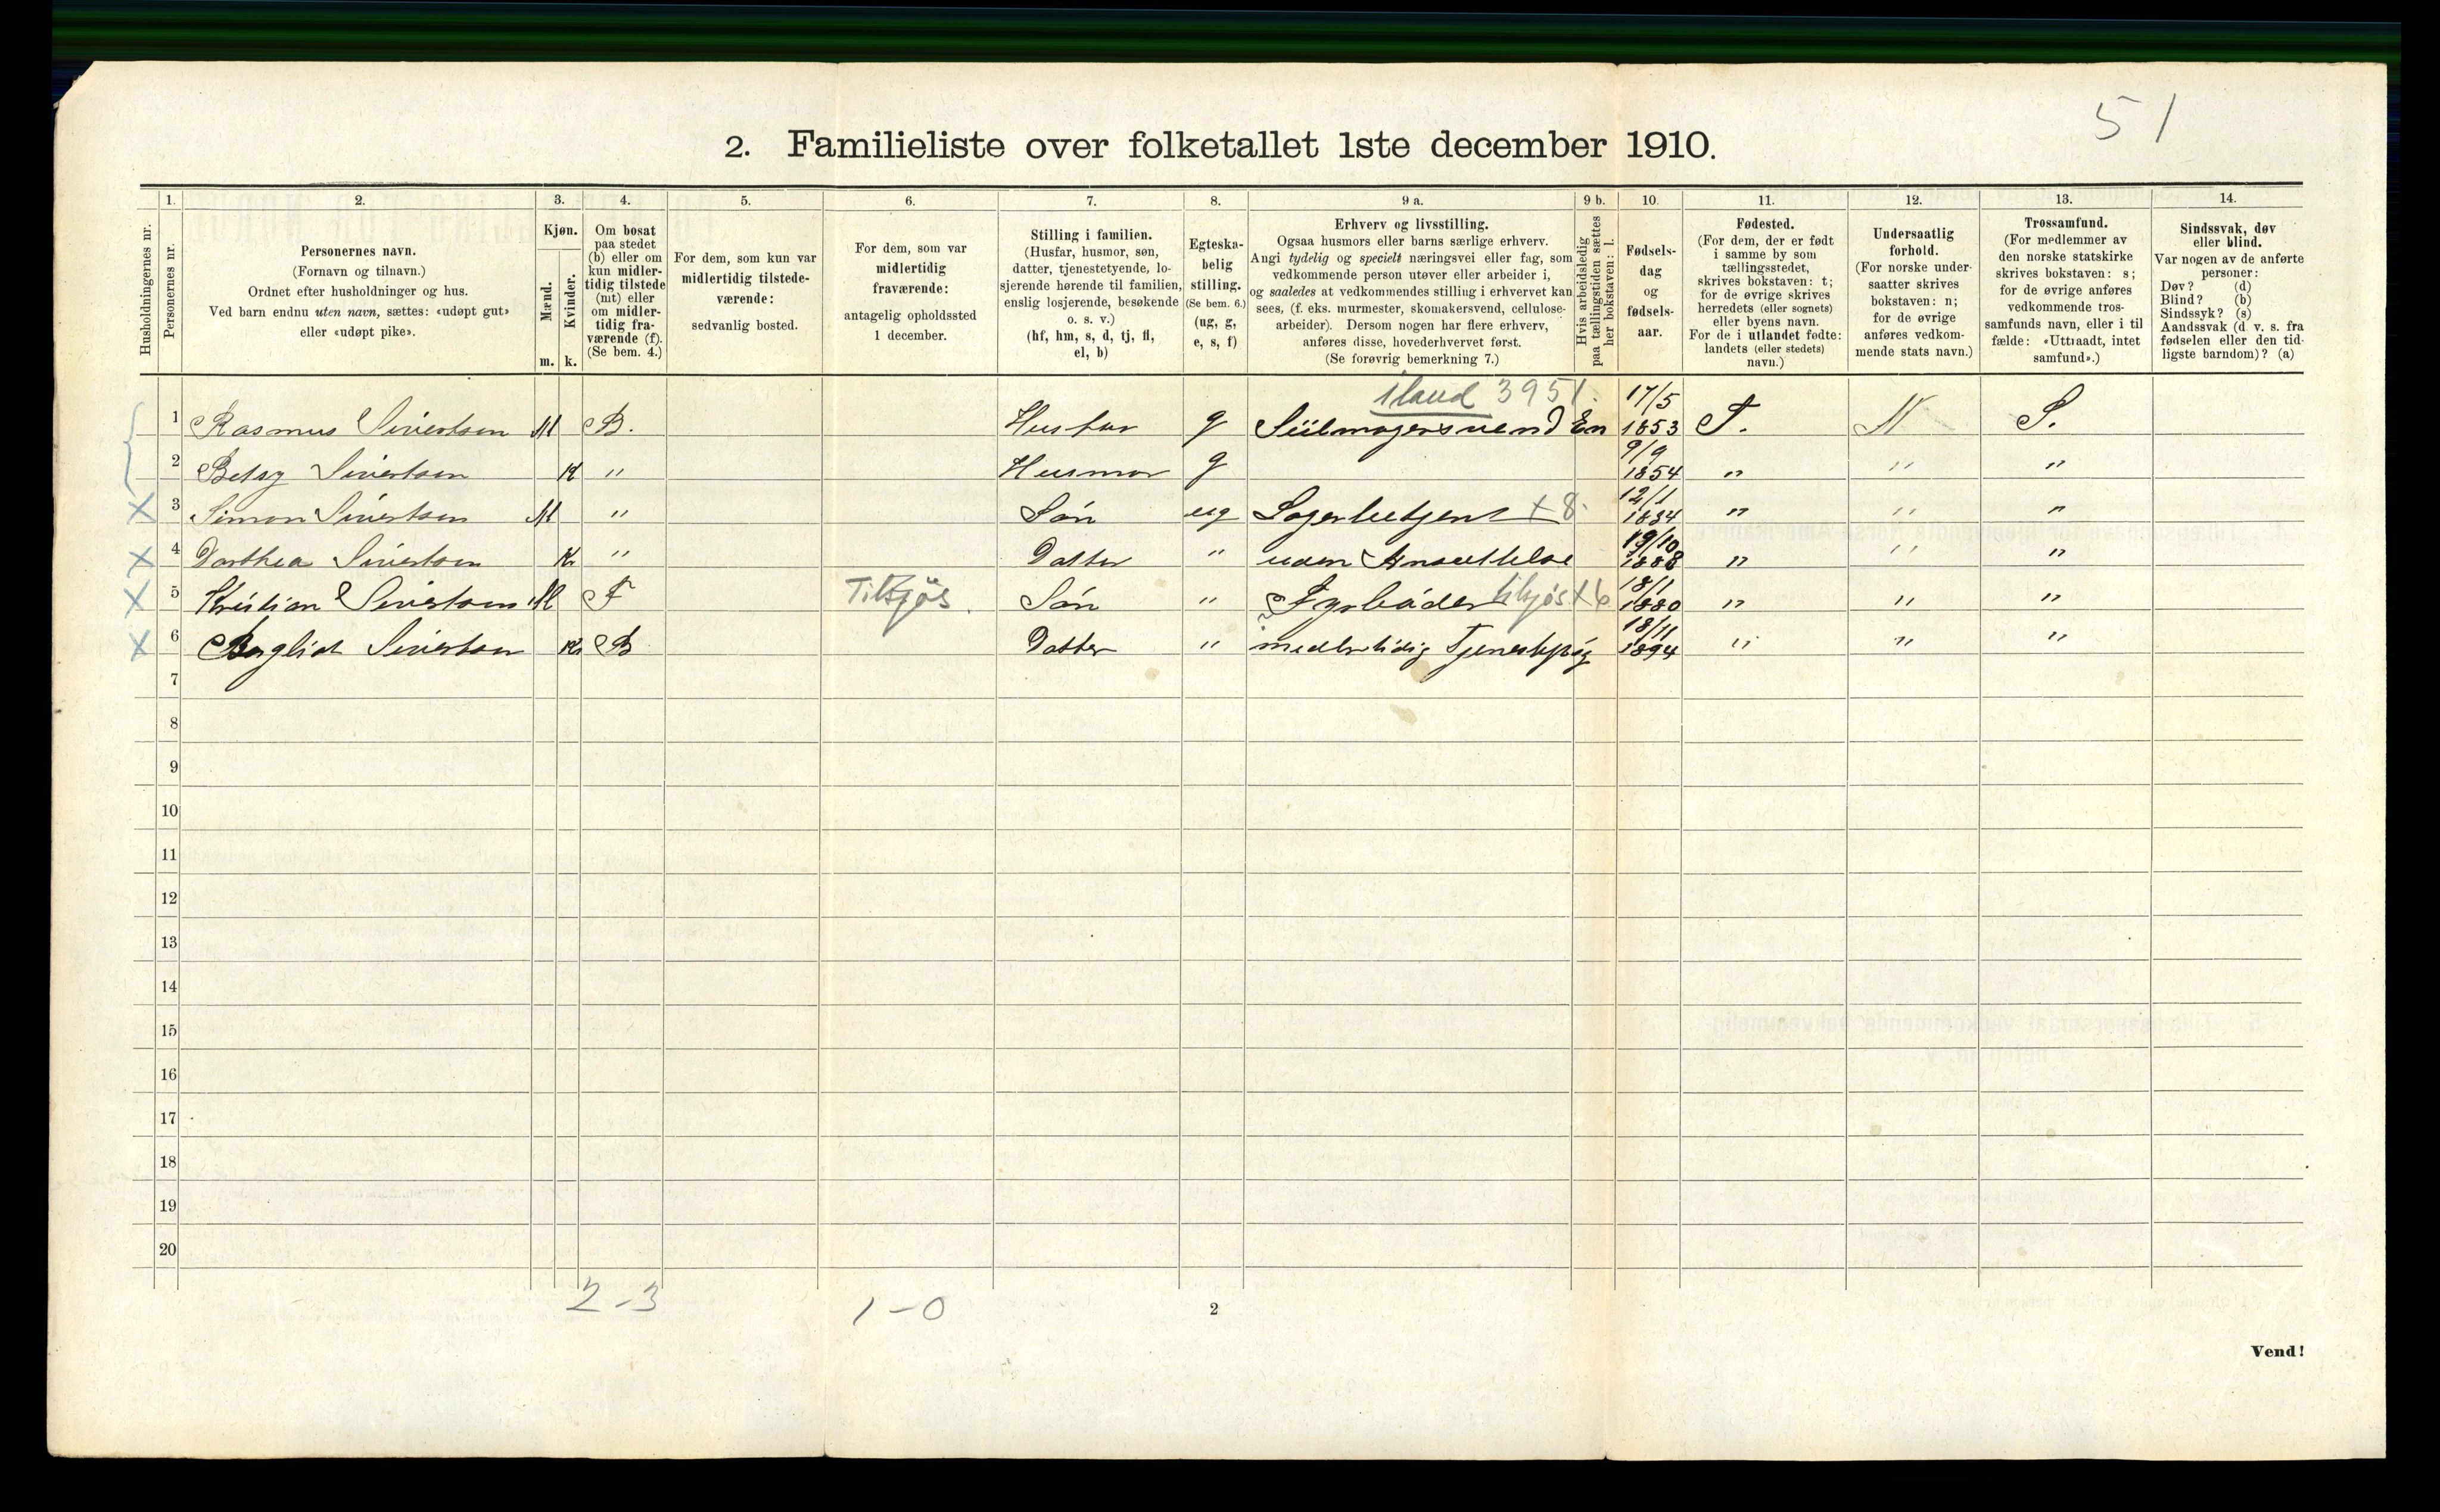 51
2. Familieliste over folketallet 1ste december 1910.
Husholdningernes nr.
1.
Personernes nr.
2.
Personernes navn.
(Fornavn og tilnavn.)
Ordnet efter husholdninger og hus.
Ved barn endnu uten navn, sættes: «udøpt gut»
eller «udøpt pike».
3.
Kjøn.
Mænd.
Kvinder.
m. k.
4.
Om bosat
paa stedet
(b) eller om
kun midler-
tidig tilstede
(mt) eller
om midler-
tidig fra-
værende (f).
(Se bem. 4.)
5.
For dem, som kun var
midlertidig tilstede-
værende:
sedvanlig bosted.
6.
For dem, som var
midlertidig
fraværende:
antagelig opholdssted
1 december.
7.
Stilling i familien.
(Husfar, husmor, søn,
datter, tjenestetyende, lo-
sjerende hørende til familien,
enslig losjerende, besøkende
o. s. v.)
(hf, hm, s, d, tj, fl,
el, b)
8.
Egteska-
belig
stilling.
(Se bem. 6.)
(ug, g,
e, s, f)
9 a.
Erhverv og livsstilling.
Ogsaa husmors eller barns særlige erhverv.
Angi tydelig og specielt næringsvei eller fag, som
vedkommende person utøver eller arbeider i,
og saaledes at vedkommendes stilling i erhvervet kan
sees, (f. eks. murmester, skomakersvend, cellulose-
arbeider). Dersom nogen har flere erhverv,
anføres disse, hovederhvervet først.
(Se forøvrig bemerkning 7.)
9 b.
Hvis arbeidsledig
paa tællingstiden sættes
her bokstaven: l.
10.
Fødsels-
dag
og
fødsels-
aar.
11.
Fødested.
(For dem, der er født
i samme by som
tællingsstedet,
skrives bokstaven: t;
for de øvrige skrives
herredets (eller sognets)
eller byens navn.
For de i utlandet fødte:
landets (eller stedets)
navn.)
12.
Undersaatlig
forhold.
(For norske under-
saatter skrives
bokstaven: n;
for de øvrige
anføres vedkom-
mende stats navn.)
13.
Trossamfund.
(For medlemmer av
den norske statskirke
skrives bokstaven: s;
for de øvrige anføres
vedkommende tros-
samfunds navn, eller i til
fælde: «Uttraadt, intet
samfund».)
14.
Sindssvak, døv
eller blind.
Var nogen av de anførte
personer:
Døv? (d)
Blind? (b)
Sindssyk? (s)
Aandssvak (d. v. s. fra
fødselen eller den tid-
ligste barndom)? (a)
iland 3951.
1 Rasmus Sivertsen M B. Husfar g Seilmagersvend En 17/5 1853 T. N S.
2 Betsy Sivertsen K " Husmor g 9/9 1854 " " "
X 3 Simon Sivertsen M " Sön ug Lagerbetjent +8. 12/1 1884 " " "
X 4 Dorthea Sivertsen K " Datter " uden Ansettelse 19/10 1888 " " "
X 5 Kristian Sivertsen M F Tilsjøs. Sön " Fyrböder tilsjøs +6 18/1 1880 " " "
X 6 Bergliot Sivertsen K B Datter " midlertidig Tjenestepig 18/11 1894 " " "
7
8
9
10
11
12
13
14
15
16
17
18
19
20
2-3 1-0
2
Vend!